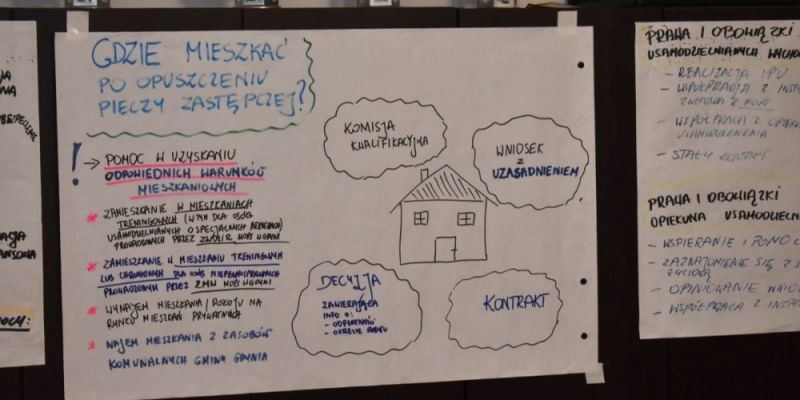 GDZIE MIESZKAĆ
PO OPUSZCZENIU
PIECZY ZASTĘPCZEJ?
! → POMOC W UZYSKANIU
ODPOWIEDNICH WARUNKÓW
MIESZKANIOWYCH
* ZAMIESZKANIE W MIESZKANIACH
TRENINGOWYCH (W TYM DLA OSÓB
USAMODZIELNIANYCH O SPECJALNYCH POTRZEBACH)
PROWADZONYCH PRZEZ MOPS W GDYNI
* ZAMIESZKANIE W MIESZKANIU TRENINGOWYM
LUB CHRONIONYM DLA OSÓB NIEPEŁNOSPRAWNYCH
PROWADZONYM PRZEZ ZMW MOPS W GDYNI
* WYNAJEM MIESZKANIA / POKOJU NA
RYNKU MIESZKAŃ PRYWATNYCH
* NAJEM MIESZKANIA Z ZASOBÓW
KOMUNALNYCH GMINY GDYNIA
KOMISJA
KWALIFIKACYJNA
WNIOSEK
Z
UZASADNIENIEM
DECYZJA
ZAWIERAJĄCA
INFO O:
- ODPŁATNOŚĆ
- OKRESIE POBYTU
KONTRAKT
PRAWA I OBOWIĄZKI
USAMODZIELNIANYCH
- REALIZACJA IPU
- WSPÓŁPRACA Z
- WSPÓŁPRACA Z
USAMODZIELNIENIA
- STAŁY KONTAKT
PRAWA I OBOWIĄZKI
OPIEKUNA USAMODZIELN
- WSPIERANIE I POMOC
- ZAZNAJOMIENIE SIĘ Z
- OPINIOWANIE
- WSPÓŁPRACA Z